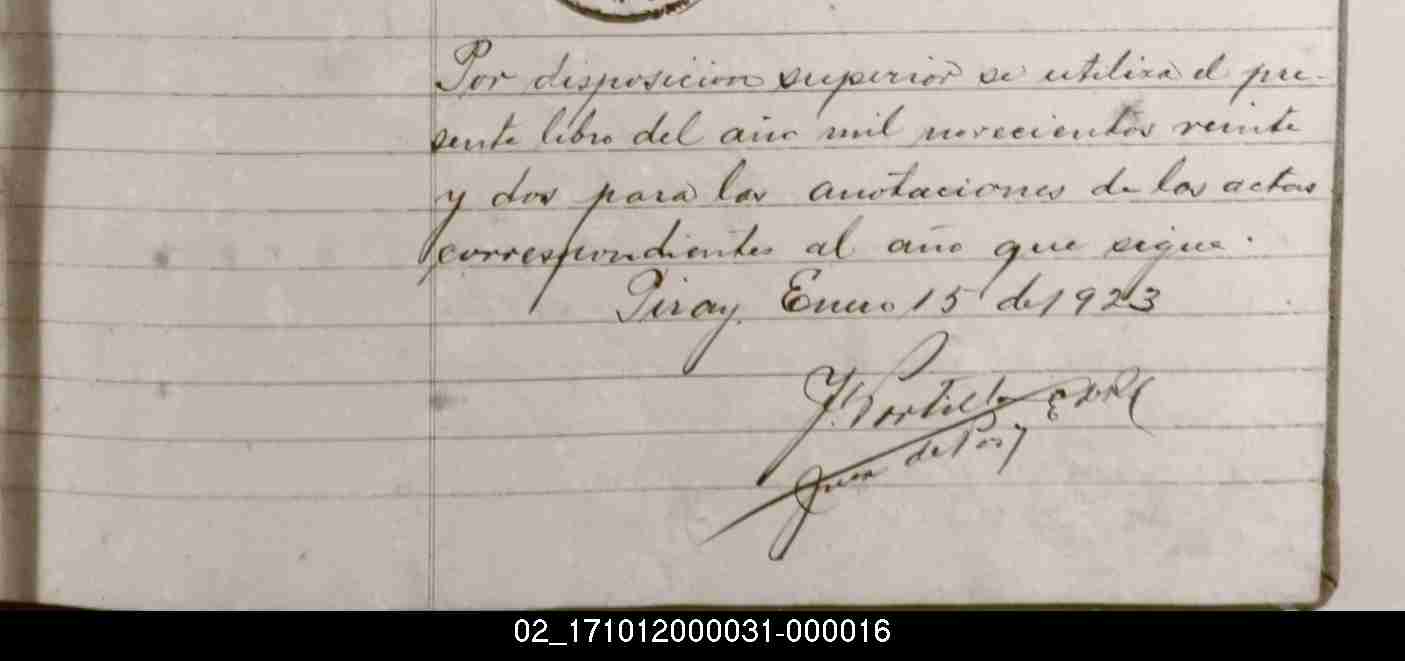 Por disposicion superior se utiliza el pre-
sente libro del año mil novecientos veinte
y dos para las anotaciones de las actas
correspondientes al año que sigue.
Piray Enero 15 de 1923
Portillo
Juez de Paz
02_171012000031-000016